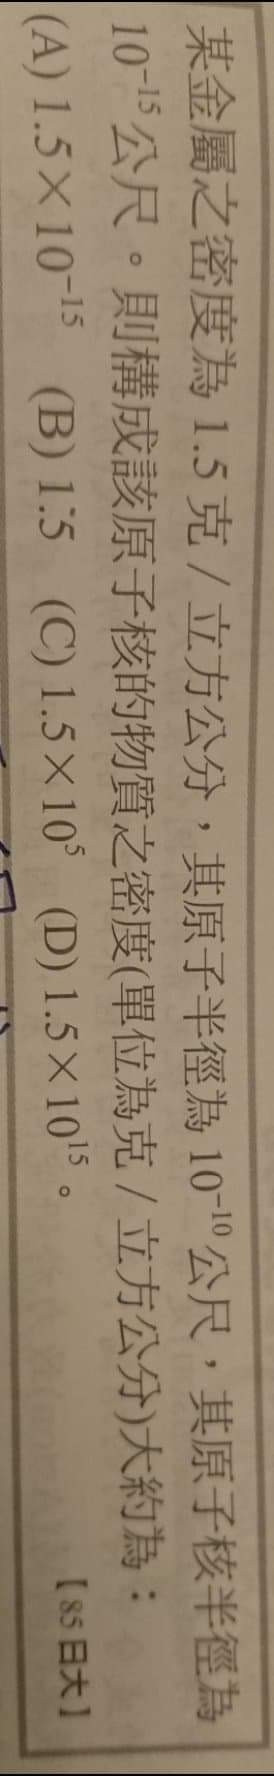 某金屬之密度為 1.5 克 / 立方公分，其原子半徑為 10⁻¹⁰ 公尺，其原子核半徑為
10⁻¹⁵ 公尺。則構成該原子核的物質之密度(單位為克 / 立方公分)大約為：
(A) 1.5×10⁻¹⁵ (B) 1.5 (C) 1.5×10⁵ (D) 1.5×10¹⁵。
【85 日大】